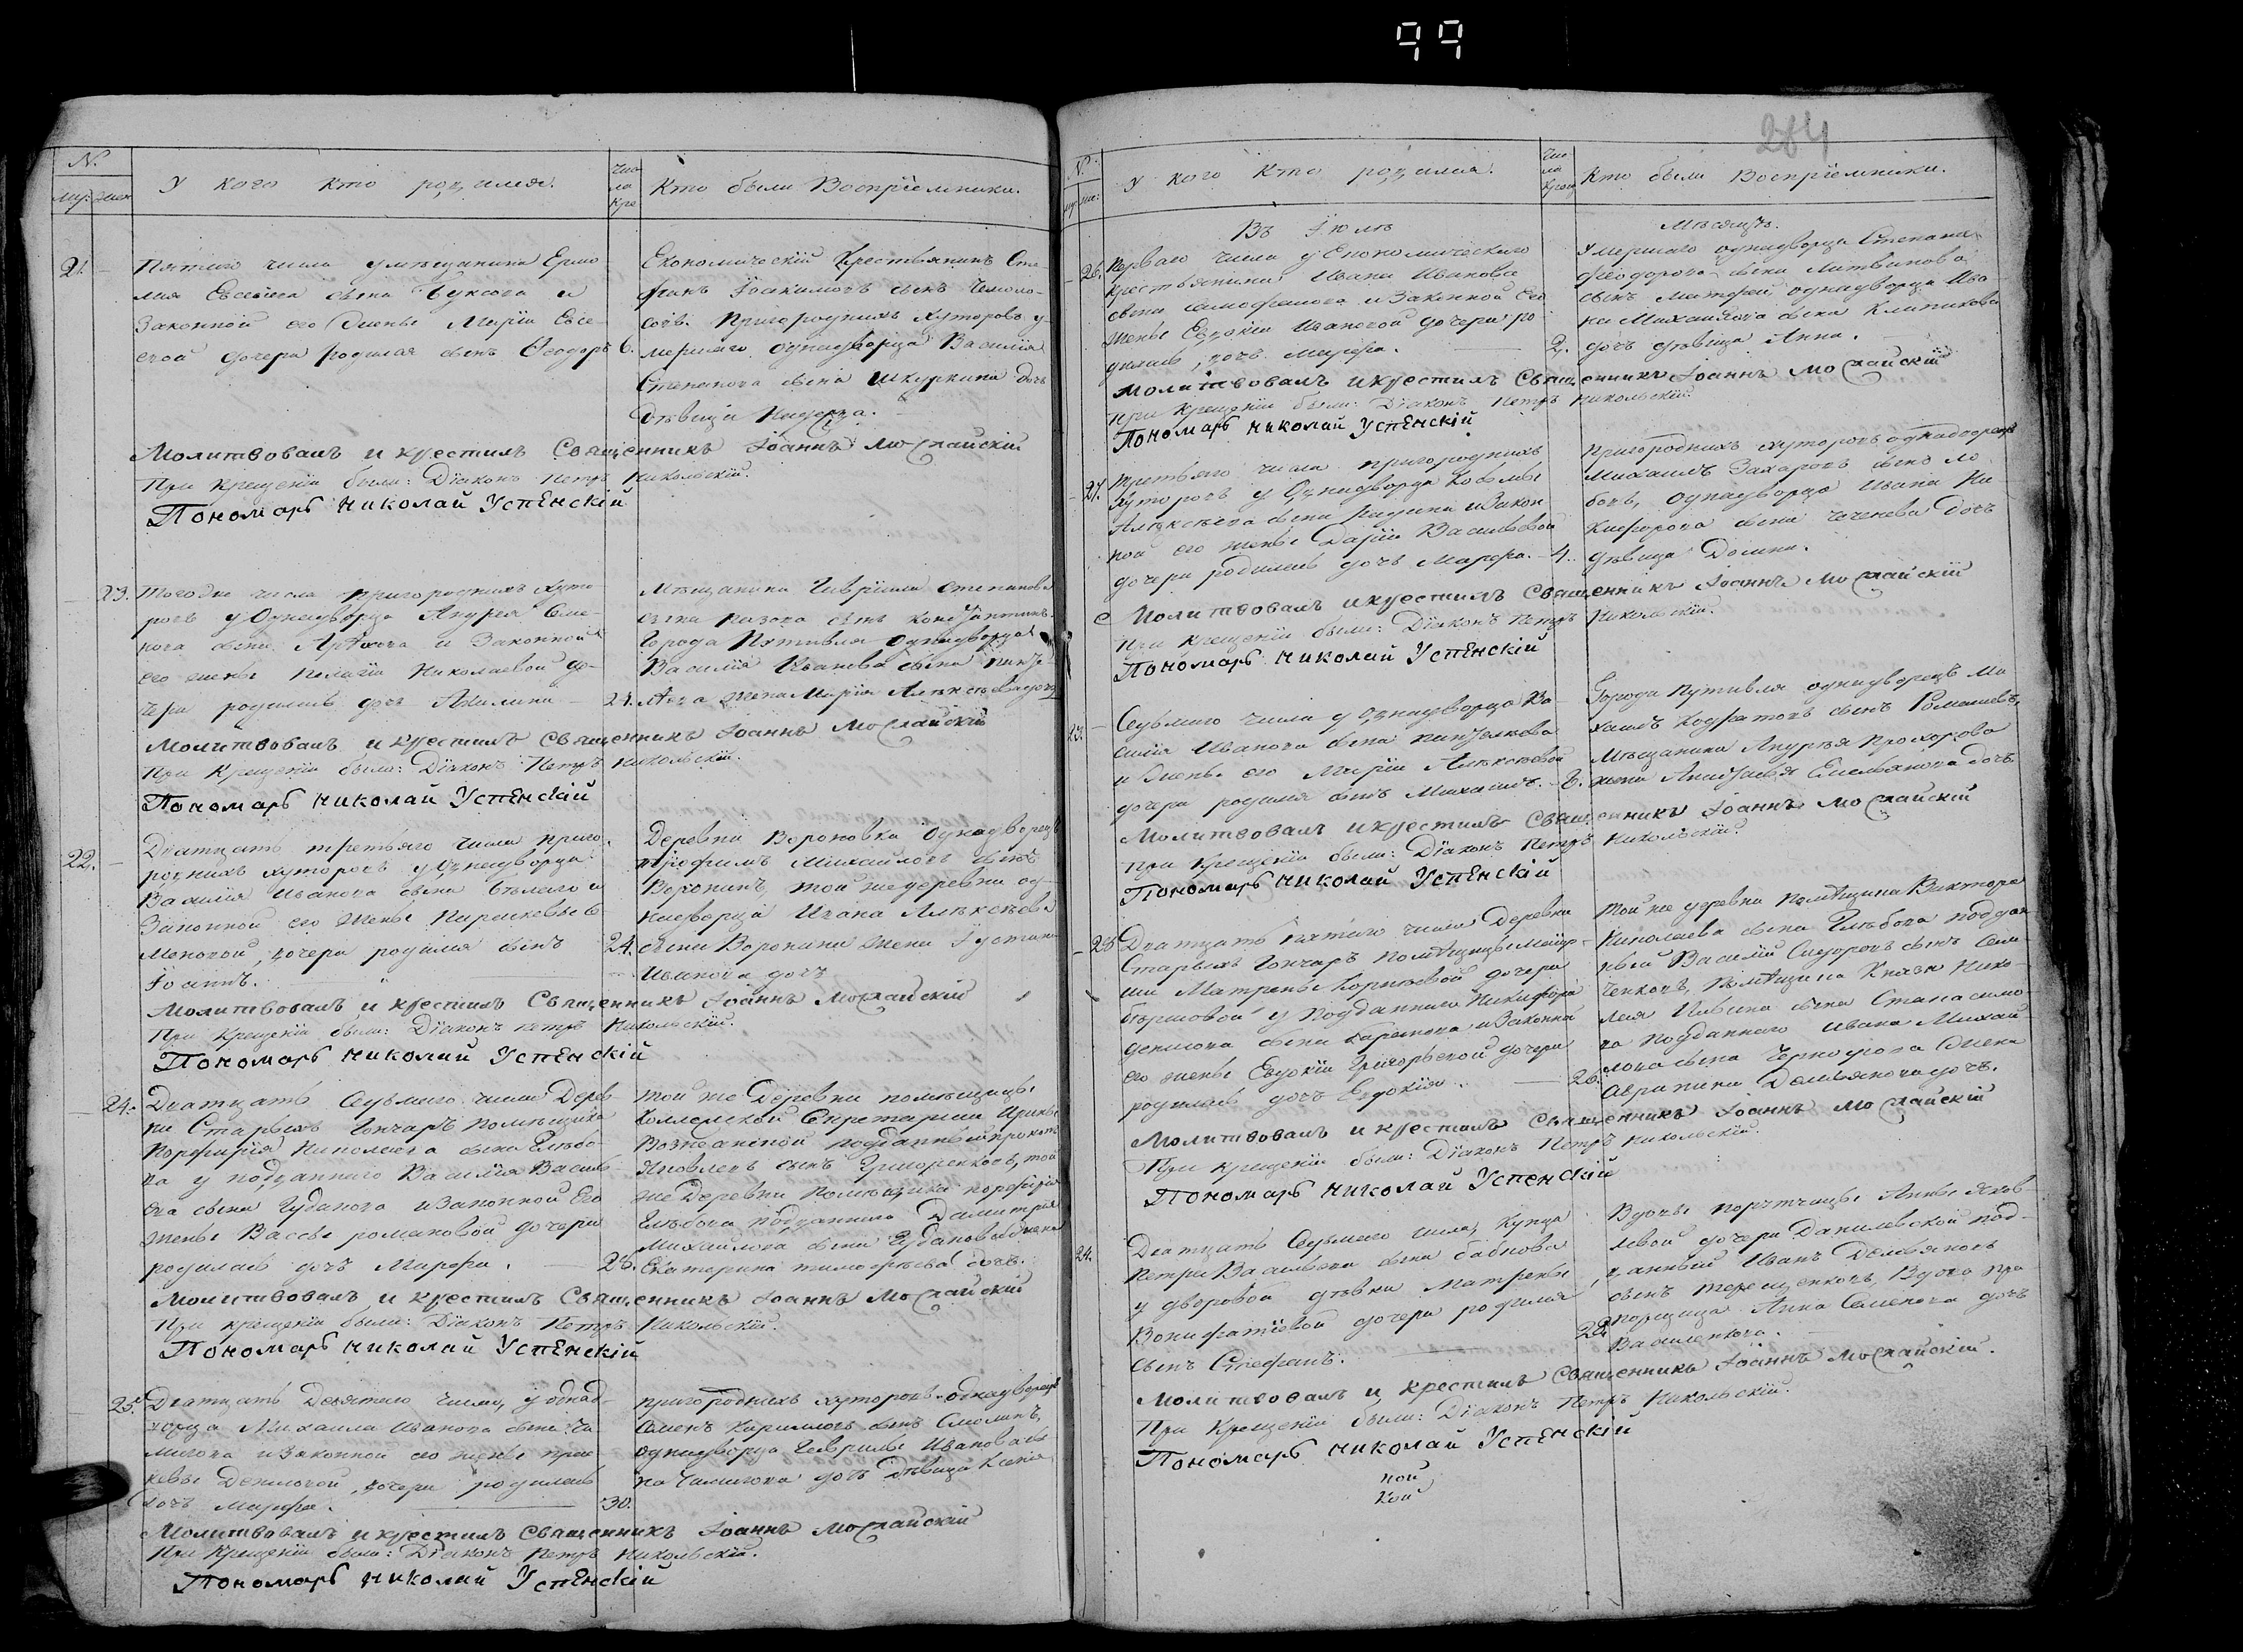 99
284
N.
Му: Жен
У кого Кто родился.
Чис
ла
Кре
Кто были Воспріемники.
21.
Пятаго числа у мѣщанина Ермо
лая Евсеіева сына и
Законной его Жены Маріи Евсе
евой дочери родился сынъ Ѳеодоръ 6.
Економическій Крестьянинъ Сте
фанъ Іоакимовъ сынъ
Пригородныхъ Хуторовъ у
мершаго Однодворца Василія
Степанова сына Шкуркина дочь
Дѣвица
Молитвовалъ и крестилъ Священникъ Іоаннъ Можайскій
При Крещеніи были: Діаконъ Петръ Никольскій.
Пономарь Николай Успенскій
23.
Тогоже числа Пригородныхъ Хуто
ровъ у Однодворца Андрея Семе
нова сына и Законной
его жены Пелагіи Николаевой до-
чери родилась дочь Акилина 24.
Мѣщанина Гавріила Степанова
сына сынъ Константинъ.
Города Путивля Однодворца
Василія Иванова сына
жена Марія Алексѣева дочь
Молитвовалъ и крестилъ Священникъ Іоаннъ Можайскій
При Крещеніи были: Діаконъ Петръ Никольскій.
Пономарь Николай Успенскій
22.
Дватцать третьяго числа Приго
родныхъ хуторовъ у Однодворца
Василія Иванова сына Бѣлаго и
Законной его Жены Параскевы Се
меновой, дочери родился сынъ 24.
Іоаннъ.
Деревни Вороновка Однодворецъ
Трофимъ Михайловъ сынъ
Воронинъ, той же деревни од-
нодворца Ивана Алексѣева
сына Воронина жена Іустина
Иванова дочь
Молитвовалъ и крестилъ Священникъ Іоаннъ Можайскій
При Крещеніи были: Діаконъ Петръ Никольскій.
Пономарь Николай Успенскій
24.
Дватцать Седьмаго числа Дерев-
ни Старыхъ Гончаръ Помѣщика
Порфирія Николаева сына Глѣбо-
ва у подданнаго Василія Василь-
ева сына Гуданова и Законной Его
жены Вассы Романовой дочери
родилась дочь Марфа. 28.
Той же Деревни помѣщицы
Секретарши Ирины
подданный Прокопъ
Яковлевъ сынъ Григоренковъ, той
же Деревни Помѣщика Порфирія
Глѣбова подданнаго Димитрія
Михайлова сына Гуданова жена
Екатерина Тимофѣева дочь.
Молитвовалъ и крестилъ Священникъ Іоаннъ Можайскій
При крещеніи были: Діаконъ Петръ Никольскій.
Пономарь Николай Успенскій
25.
Дватцать Девятаго числа, у однод-
ворца Михаила Иванова сына Ча
мигова и Законной его жены Прас
кевы Денисовой, дочери родилась
дочь Марфа. 30.
Пригородныхъ хуторовъ однодворецъ
Семенъ Кирилловъ сынъ Смолинъ,
однодворца Гаврилы Иванова сы
на Чамигова дочь Дѣвица Ксенія
Молитвовалъ и крестилъ Священникъ Іоаннъ Можайскій
При Крещеніи были: Діаконъ Петръ Никольскій.
Пономарь Николай Успенскій
N.
У кого Кто родился.
Чис
ла
Крещ
Кто были Воспріемники.
Въ Іюлѣ Мѣсяцѣ.
26.
Перваго числа у Економическаго
крестьянина Ивана Иванова
сына и Законной его
Жены Евдокіи Ивановой дочери ро
дилась, дочь Марфа. 2.
Умершаго однодворца Степана
Ѳеодорова сына Литвинова
сынъ Матфей, однодворца Ива
на Михайлова сына Климкова
дочь дѣвица Анна.
Молитвовалъ и крестилъ Священникъ Іоаннъ Можайскій
При Крещеніи были: Діаконъ Петръ Никольскій.
Пономарь Николай Успенскій
27.
Третьяго числа Пригородныхъ
Хуторовъ у Однодворца Козьмы
Алексѣева сына и Закон
ной его жены Даріи Васильевой
дочери родилась дочь Марфа. 4.
Пригородныхъ хуторовъ однодворецъ
Михаилъ Захаровъ сынъ Ло
бовъ, Однодворца Ивана Ни
кифорова сына Чеченева дочь
дѣвица Домна.
Молитвовалъ и крестилъ Священникъ Іоаннъ Можайскій
При крещеніи были: Діаконъ Петръ Никольскій.
Пономарь Николай Успенскій
23.
Седьмаго числа у Однодворца Ва-
силія Иванова сына
и Жены его Маріи Алексѣевой
дочери родился сынъ Михаилъ. 8.
Города Путивля однодворецъ Ми
хаилъ Кодратовъ сынъ Романовъ,
Мѣщанина Андрея Прохорова
жена Анастасья Емельянова дочь
Молитвовалъ и крестилъ Священникъ Іоаннъ Можайскій
При Крещеніи были: Діаконъ Петръ Никольскій.
Пономарь Николай Успенскій
28.
Дватцать пятаго числа Деревни
Старыхъ Гончаръ Помѣщицы Маіор-
ши Матрены Корнѣевой дочери
у Подданнаго Никифора
Денисова сына и Законной
его жены Евдокіи Григорьевой дочери
родилась дочь Евдокія. 26.
Той же деревни Помѣщика Виктора
Николаева сына Глѣбова поддан
ный Василій Сидоровъ сынъ Сем
ченковъ, Помѣщика Князя Нико-
лая
на подданнаго Ивана Михай
лова сына Жена
Агрипина Демьянова дочь.
Молитвовалъ и крестилъ Священникъ Іоаннъ Можайскій
При крещеніи были: Діаконъ Петръ Никольскій.
Пономарь Николай Успенскій
24.
Дватцать Седьмаго числа, Купца
Петра Васильева сына Бабкова
у дворовой дѣвки Матрены
Вонифатіевой дочери родился
сынъ Стефанъ. 28.
Вдовы порутчицы Анны Яков
левой дочери Данилевской под-
данный Иванъ Демьяновъ
сынъ Терещенковъ, Вдова пра
порщица Анна Семенова дочь
Василенкова.
Молитвовалъ и крестилъ Священникъ Іоаннъ Можайскій.
При Крещеніи были: Діаконъ Петръ Никольскій.
Пономарь Николай Успенскій
ной
кой